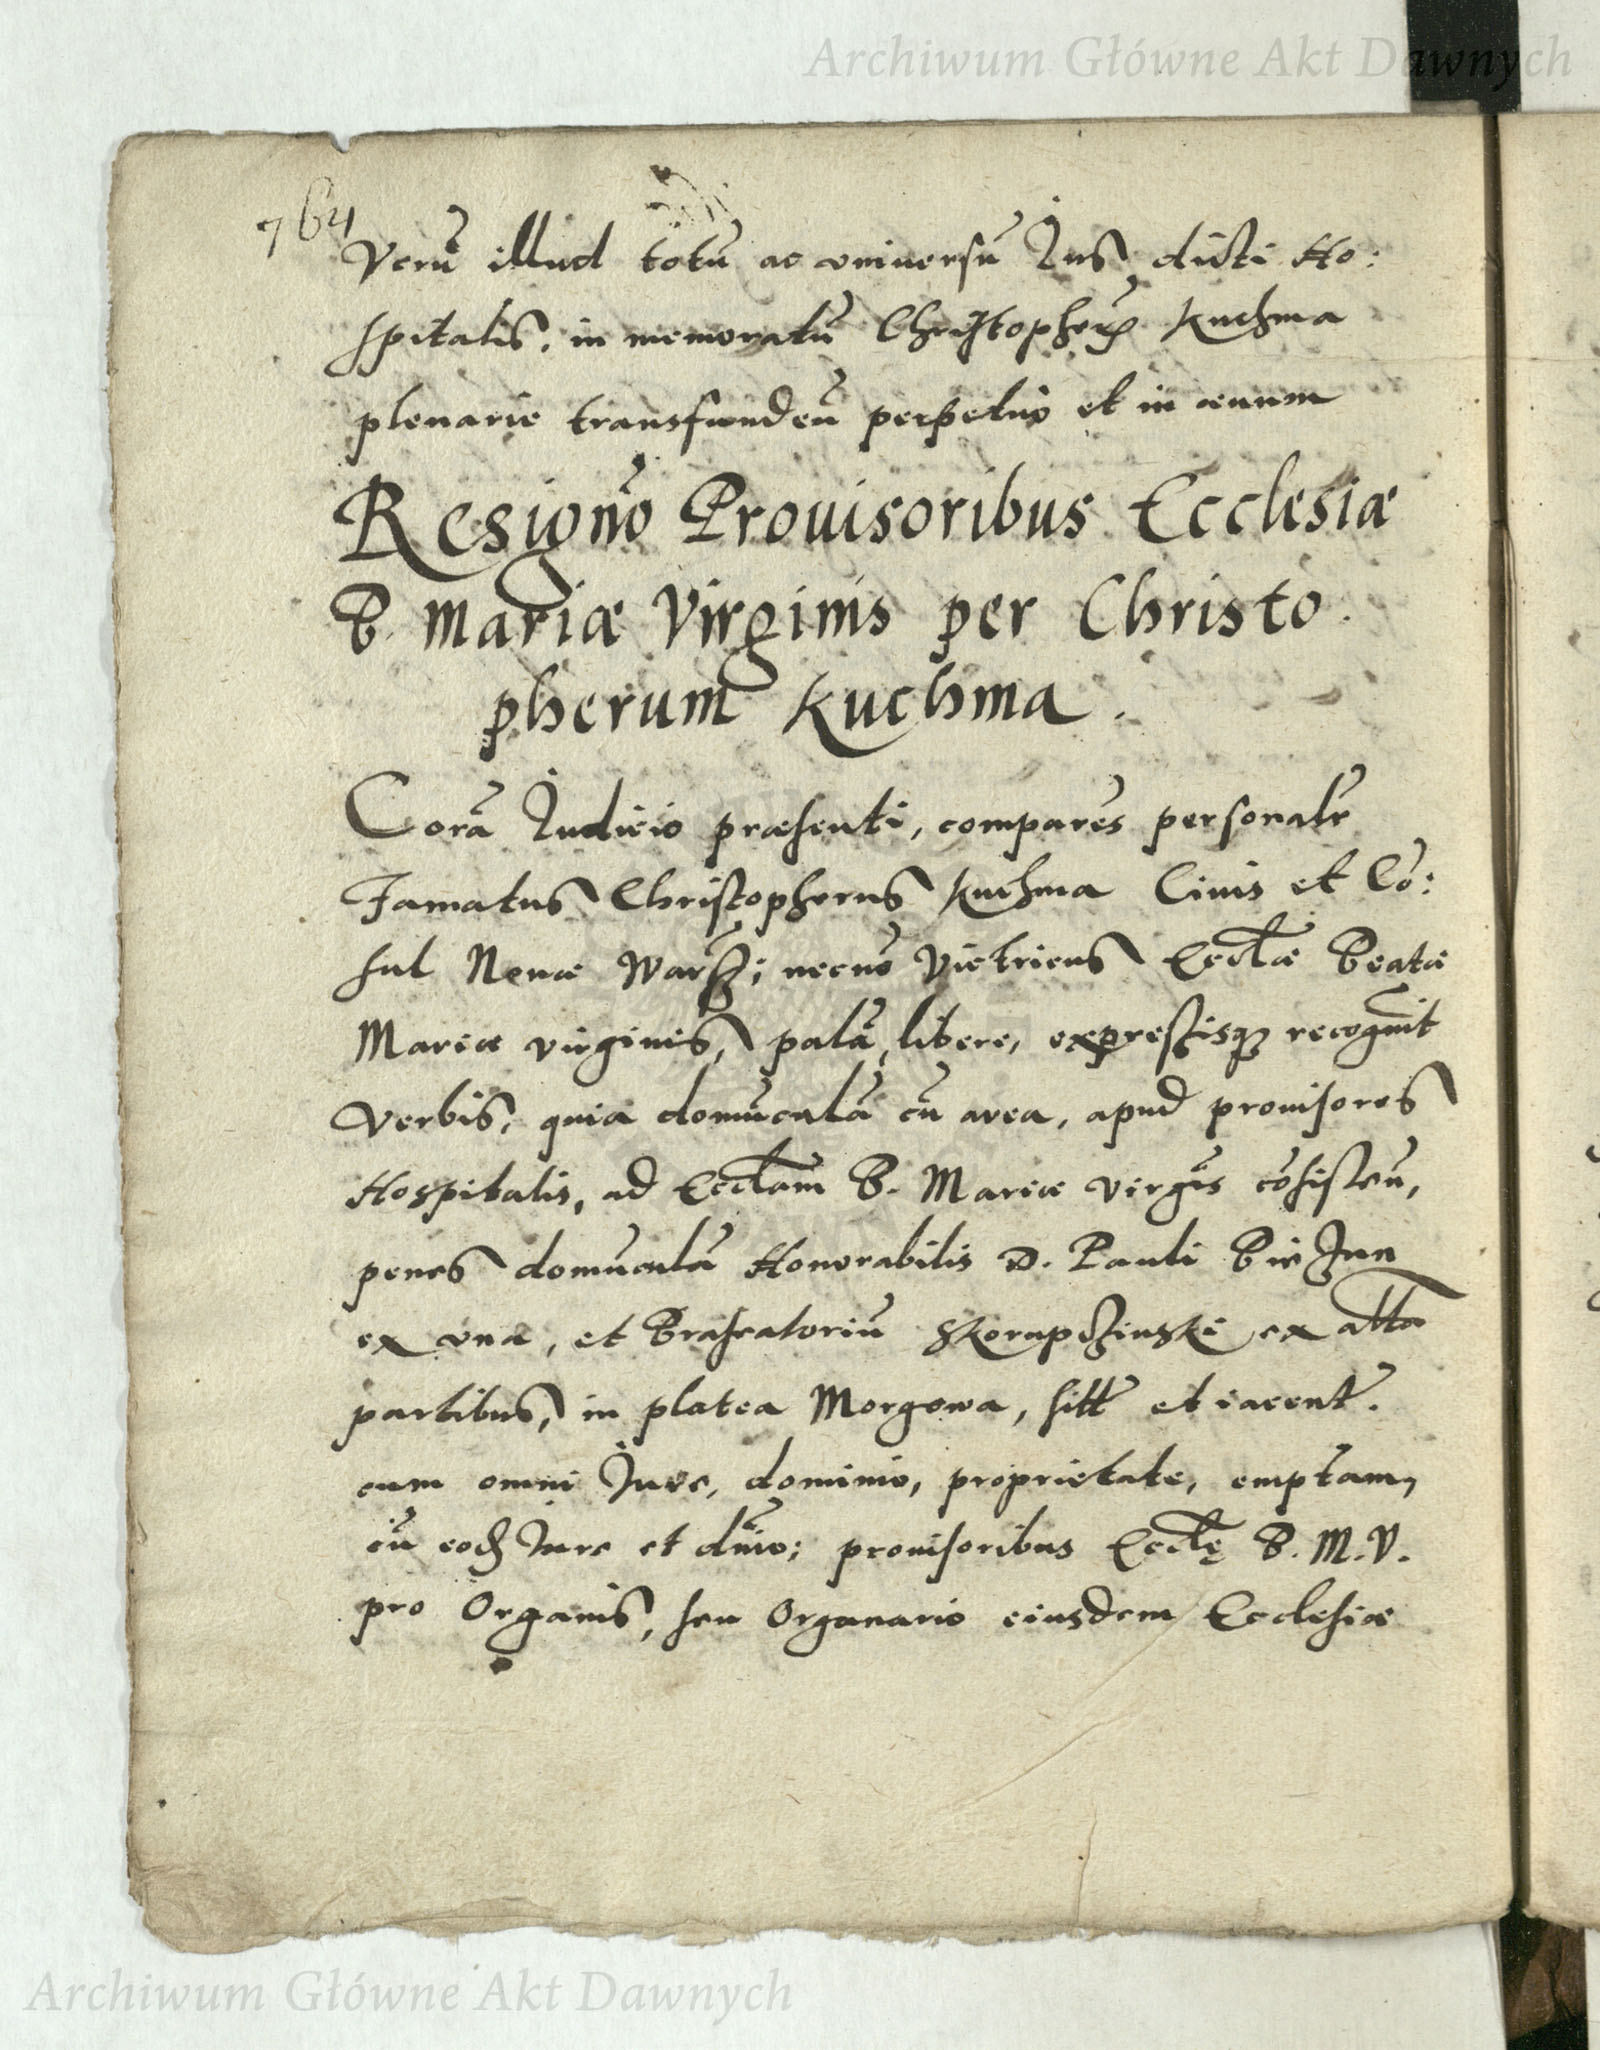 Archiwum Główne Akt Dawnych
764
Verũ illud totũ ac vniuersũ Ius, dicti Ho:
spitalis, in memoratũ Christopherũ Kuchma
plenarie transfundeñ perpetuo et in aeuum
Resigno Prouisoribus Ecclesiæ
B. Mariæ Virginis per Christo
pherum Kuchma.
Corã Iudicio præsenti, comparẽs personalr
Famatus Christopherus Kuchma Ciuis et Cõ:
sul Nouæ Warß; necnõ Victricus Eccłæ Beatæ
Mariæ virginis, palã, libere, expressisq recognit
verbis, quia domũculã cũ area, apud prouisores
Hospitalis, ad Eccłam B. Mariæ virgĩs cõsisteñ,
penes domũculã Honorabilis D. Pauli
ex vna, et Braseatoriũ ex altã
partibus, in platea Morgowa, sitt et iacent.
cum omni Iure, dominio, proprietate, emptam,
cũ eod Iure et dñio; prouisoribus Eccłę B. M. V.
pro Organis, seu Organario eiusdem Ecclesiæ
Archiwum Główne Akt Dawnych